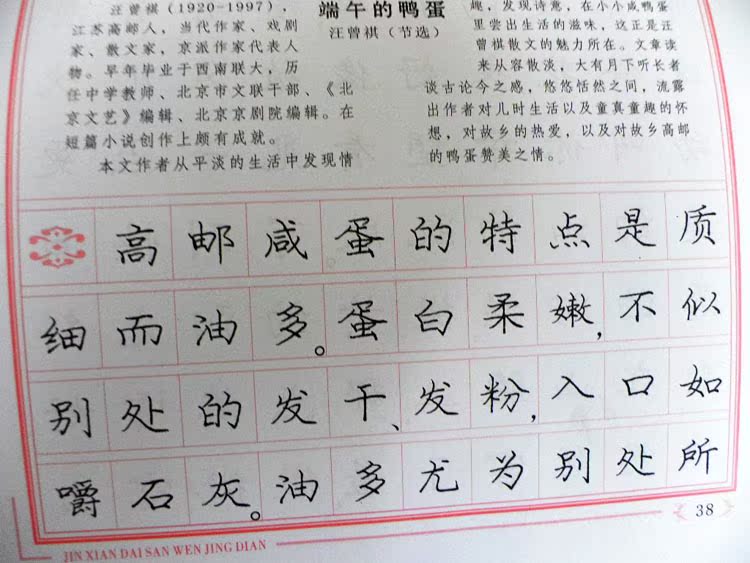 汪曾祺(1920-1997),
江苏高邮人,当代作家、戏剧
家、散文家,京派作家代表人
物。早年毕业于西南联大,历
任中学教师、北京市文联干部、《北
京文艺》编辑、北京京剧院编辑。在
短篇小说创作上颇有成就。
本文作者从平淡的生活中发现情
端午的鸭蛋
汪曾祺(节选)
趣,发现诗意,在小小咸鸭蛋
里尝出生活的滋味,这正是汪
曾祺散文的魅力所在。文章读
来从容散淡,大有月下听长者
谈古论今之感,悠悠恬然之间,流露
出作者对儿时生活以及童真童趣的怀
想,对故乡的热爱,以及对故乡高邮
的鸭蛋赞美之情。
高邮咸蛋的特点是质
细而油多。蛋白柔嫩,不似
别处的发干、发粉,入口如
嚼石灰。油多尤为别处所
38
JIN XIAN DAI SAN WEN JING DIAN